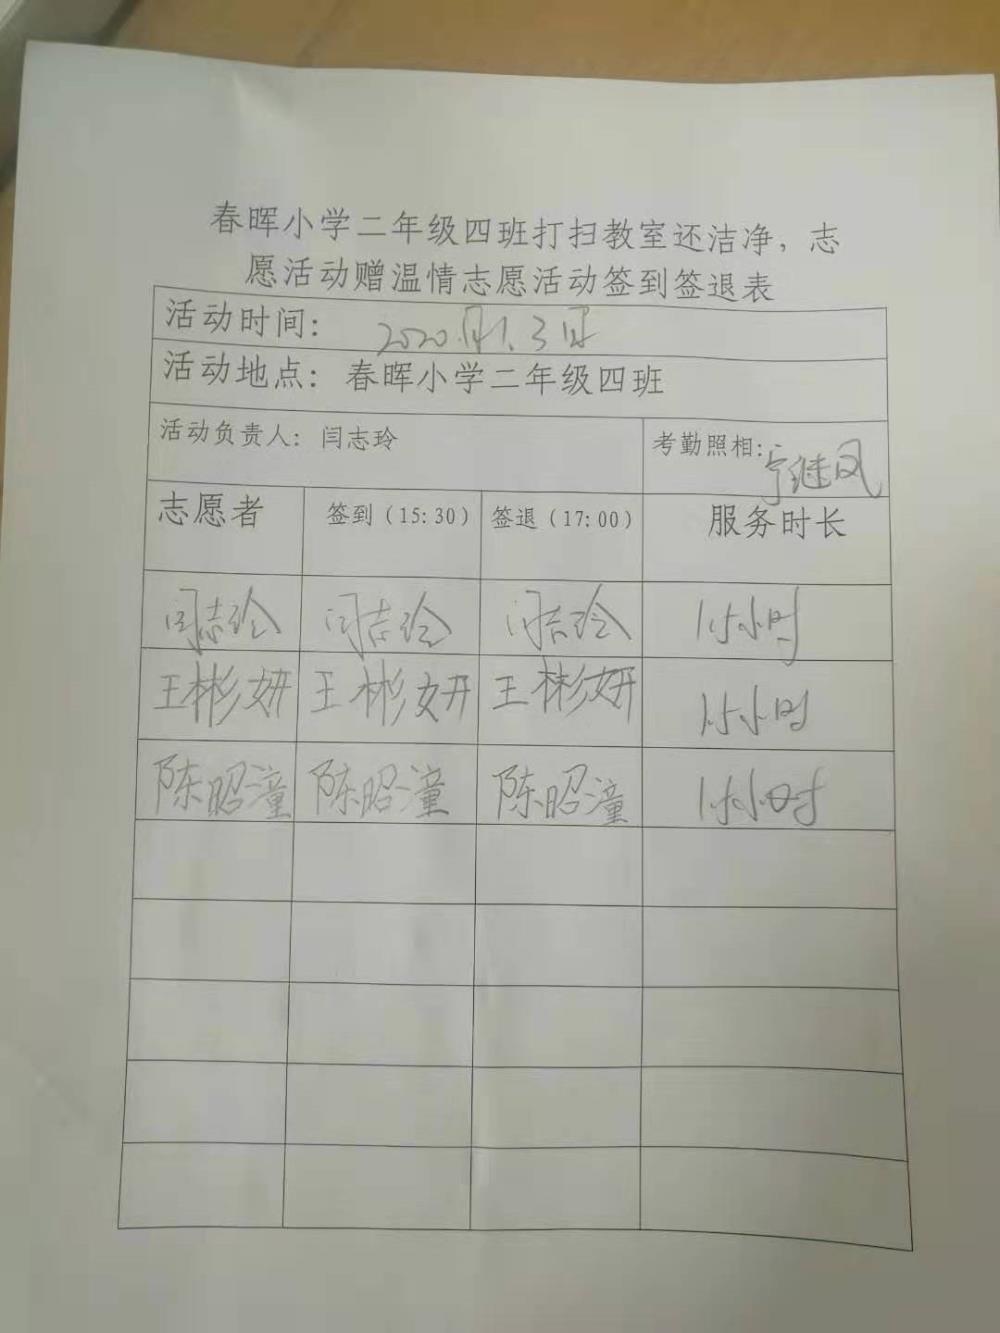 春晖小学二年级四班打扫教室还洁净，志
愿活动赠温情志愿活动签到签退表
活动时间： 2020.月1.3日
活动地点：春晖小学二年级四班
活动负责人：闫志玲 考勤照相：宁继凤
志愿者 签到（15:30） 签退（17:00） 服务时长
闫志玲 闫志玲 闫志玲 1.5小时
王彬妍 王彬妍 王彬妍 1.5小时
陈昭潼 陈昭潼 陈昭潼 1.5小时